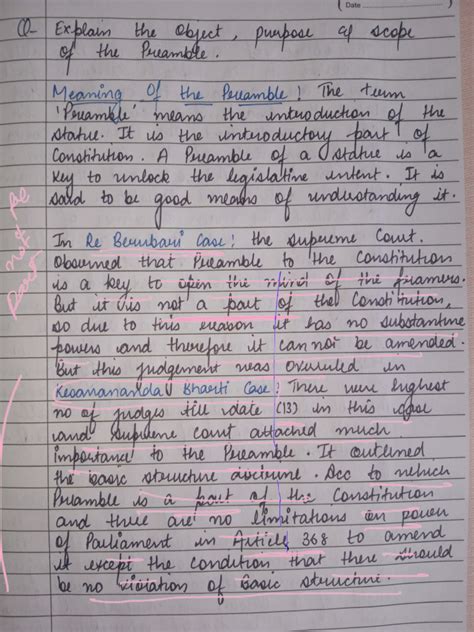 Date
Q- Explain the Object, purpose of scope
of the Preamble.
Meaning Of the Preamble! The term
'Preamble' means the introduction of the
statue. It is the introductory part of
Constitution. A Preamble of a statue is a
key to unlock the legislative intent. It is
said to be good means of understanding it.
In Re Berubari Case! the supreme Court
Observed that Preamble to the Constitution
is a key to open the mind of the framers.
But it is not a part of the Constitution,
so due to this reason it has no substantive
powers and therefore it can not be amended.
But this judgement was overruled in
Kesavananda Bharti Case! There were highest
no of judges till date (13) in this case
and supreme court attached much
importance to the Preamble. It outlined
the basic structure doctrine. Acc to which
Preamble is a part of the Constitution
and there are no limitations on power
of Parliament in Article 368 to amend
it except the condition that there should
be no violation of Basic structure.